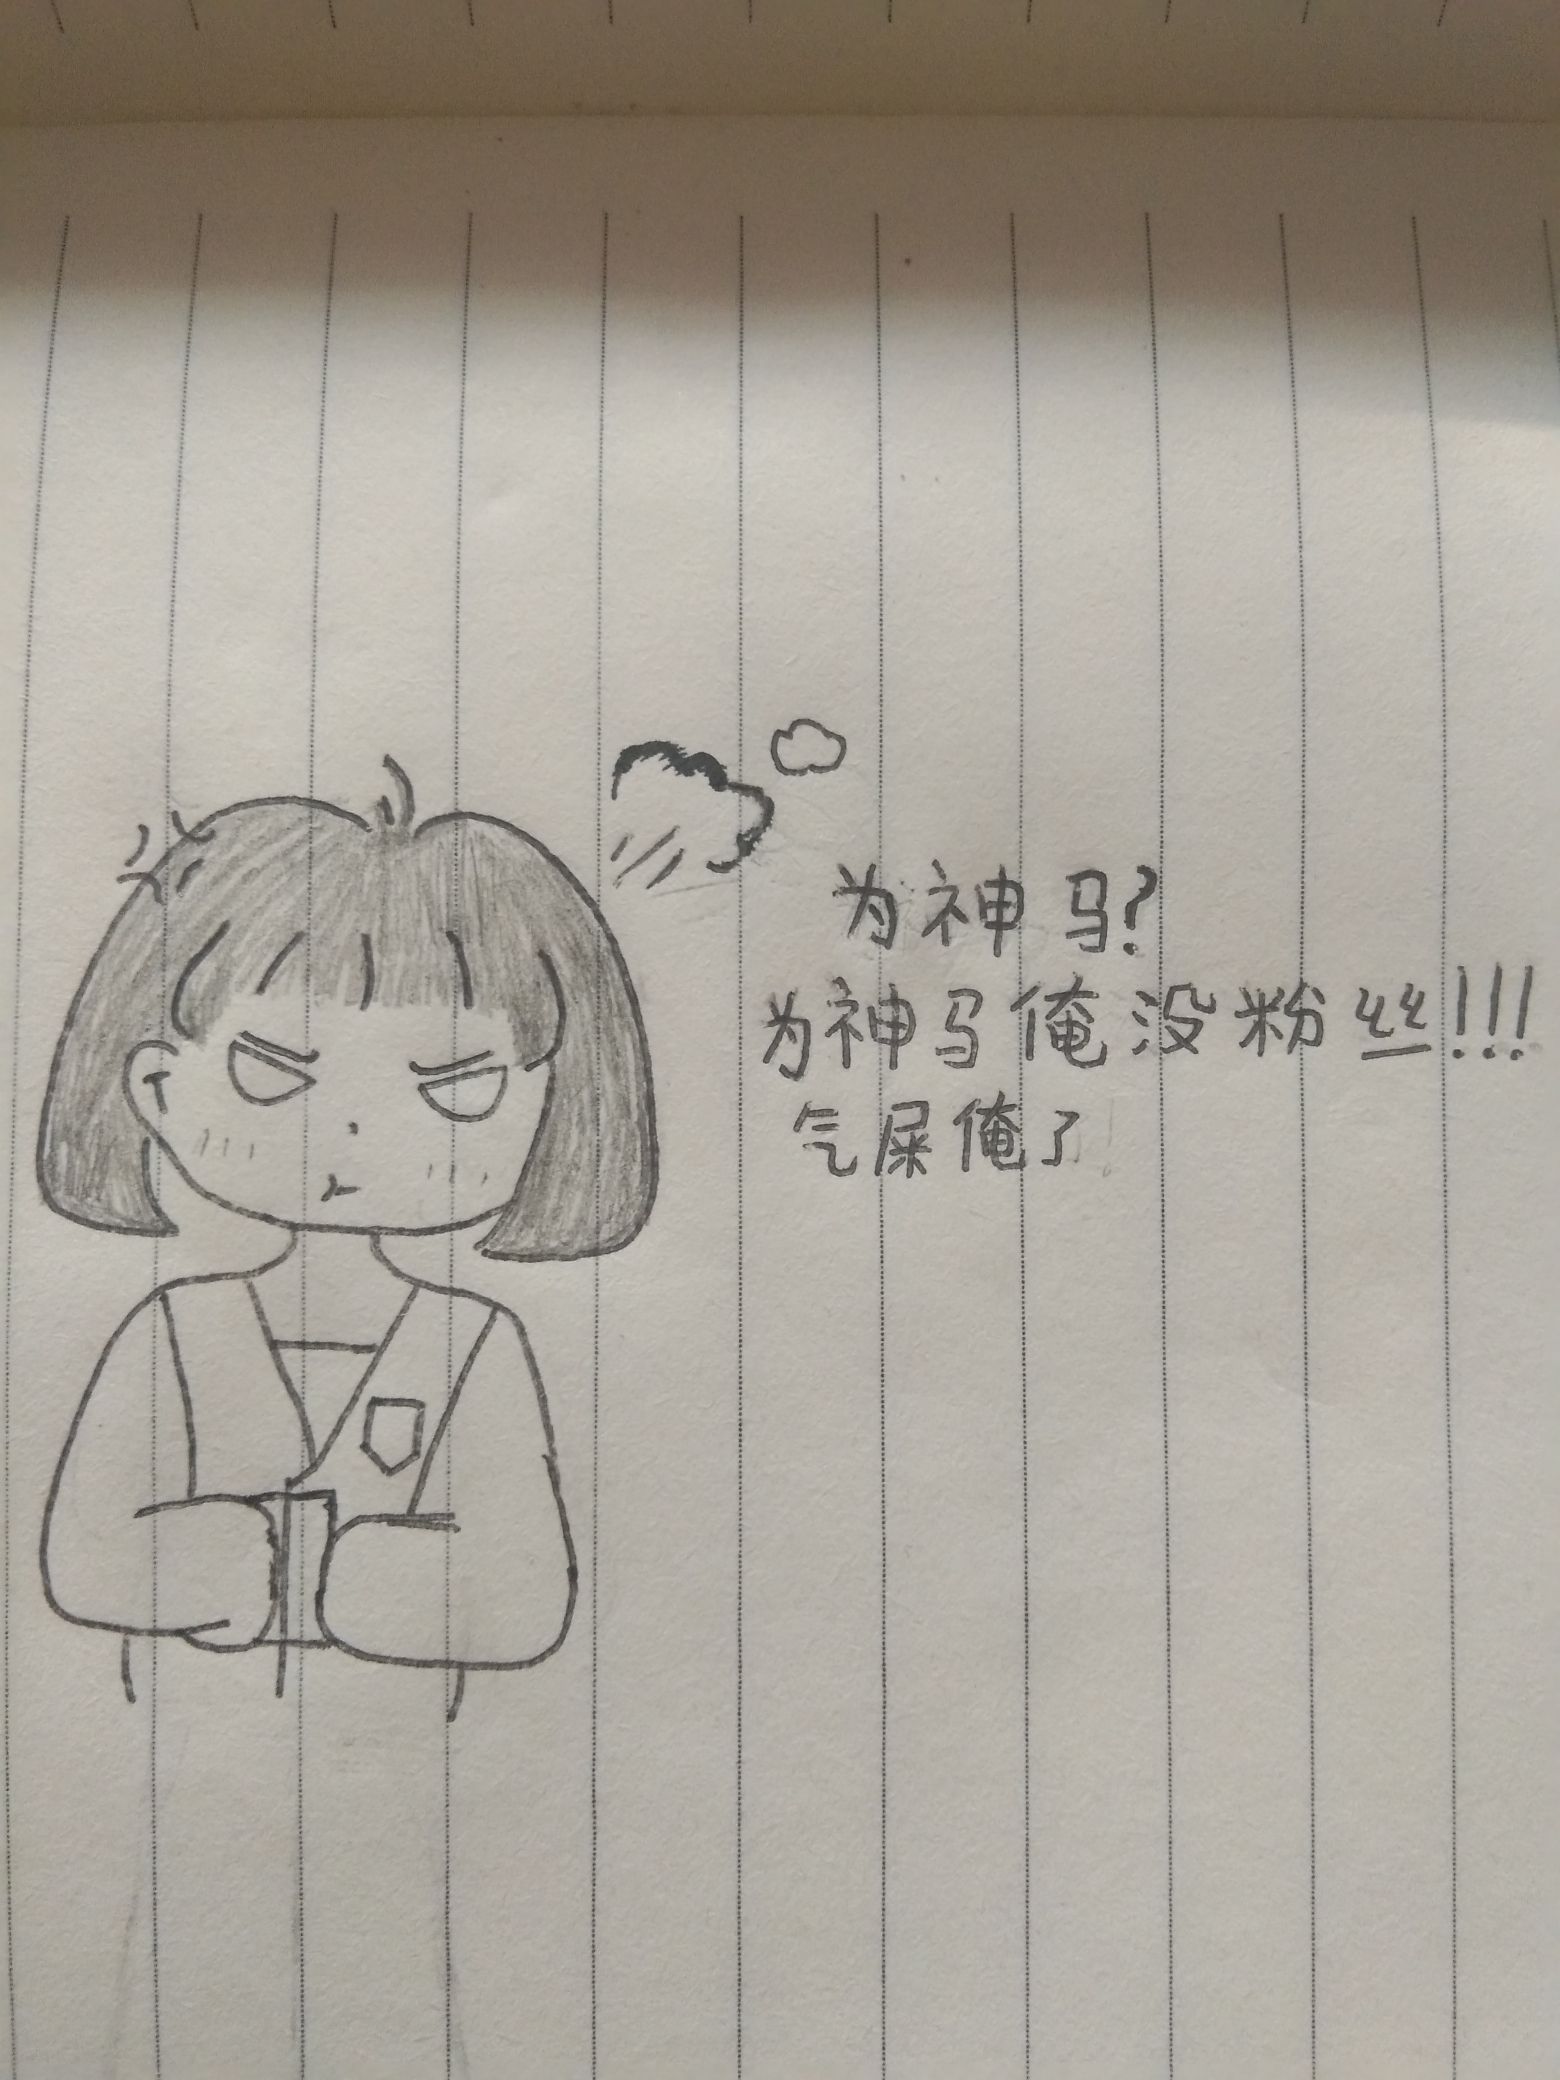 为神马?
为神马俺没粉丝!!!
气屎俺了